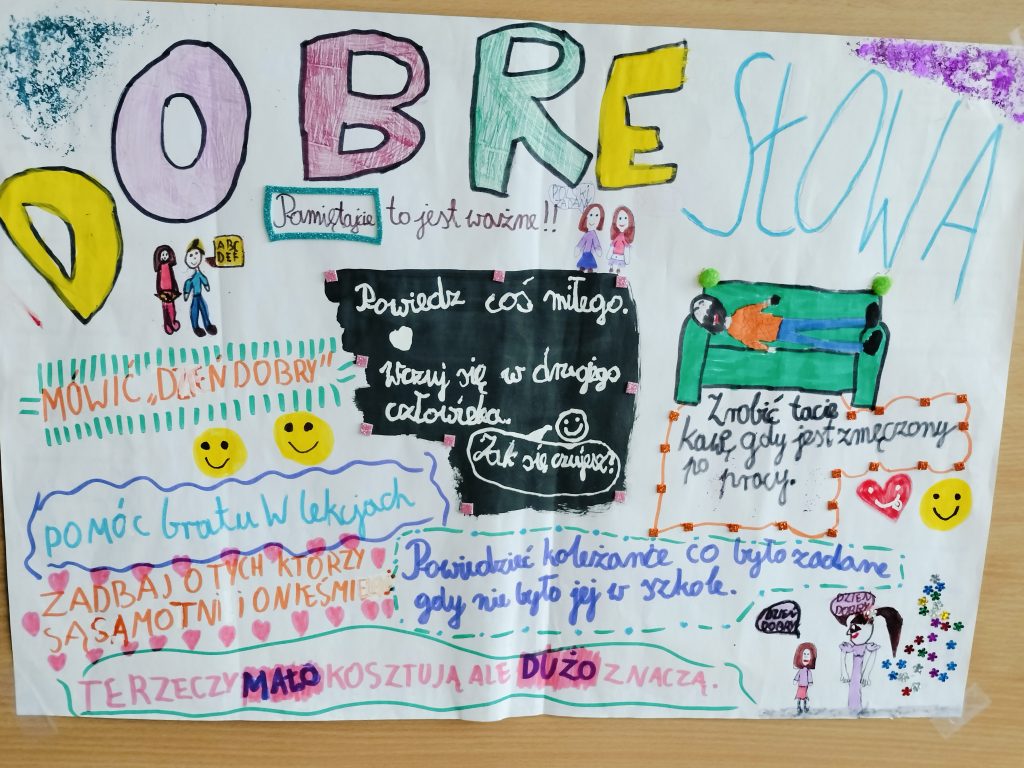 DOBRE SŁOWA
Pamiętajcie to jest ważne!!
ABC
DEF
Powiedz coś miłego.
Wczuj się w drugiego
człowieka.
Jak się czujesz?
MÓWIĆ „DZIEŃ DOBRY”
Zrobić tacie
kawę, gdy jest zmęczony
po pracy.
POMÓC bratu W lekcjach
ZADBAJ O TYCH KTÓRZY
SĄ SAMOTNI I
Powiedzieć koleżance co było zadane
gdy nie było jej w szkole.
DZIEŃ
DOBRY
DZIEŃ
DOBRY
TE RZECZY MAŁO KOSZTUJĄ ALE DUŻO ZNACZĄ.